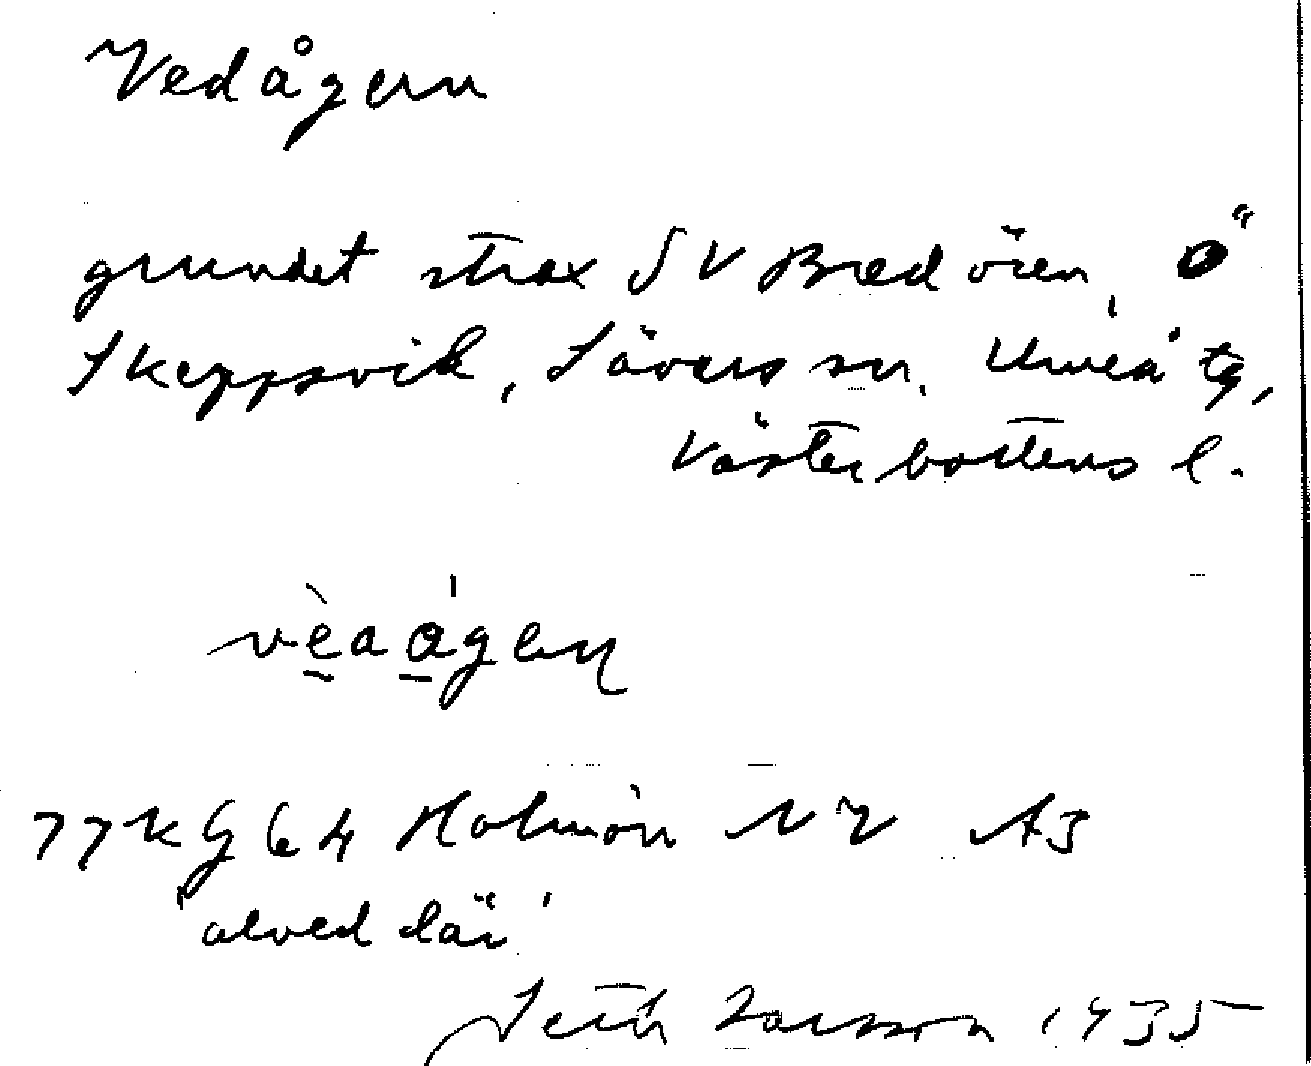 Vedågern
grundet strax SV Bredören, Ö
Skeppsvik, Sävars sn, Umeå tg,
Västerbottens l.
vèaågen
77 KG 64 Holmön NV A3
'alved där'
Seth Larsson 1935